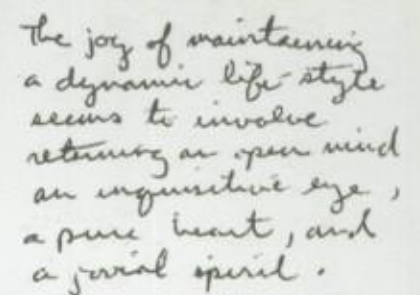 The joy of maintaining
a dynamic life-style
seems to involve
retaining an open mind
an inquisitive eye,
a pure heart, and
a jovial spirit.